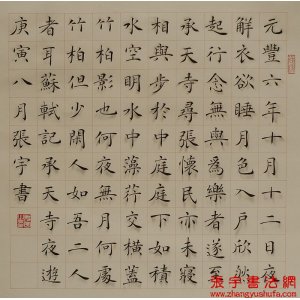 元豐六年十月十二日夜
解衣欲睡月色入戶欣然
起行念無與為樂者遂至
承天寺尋張懷民亦未寢
相與步於中庭庭下如積
水空明水中藻荇交橫蓋
竹柏影也何夜無月何處
竹柏但少閑人如吾二人
者耳蘇軾記承天寺夜遊
庚寅八月張宇書
張宇書法網
www.zhangyushufa.com